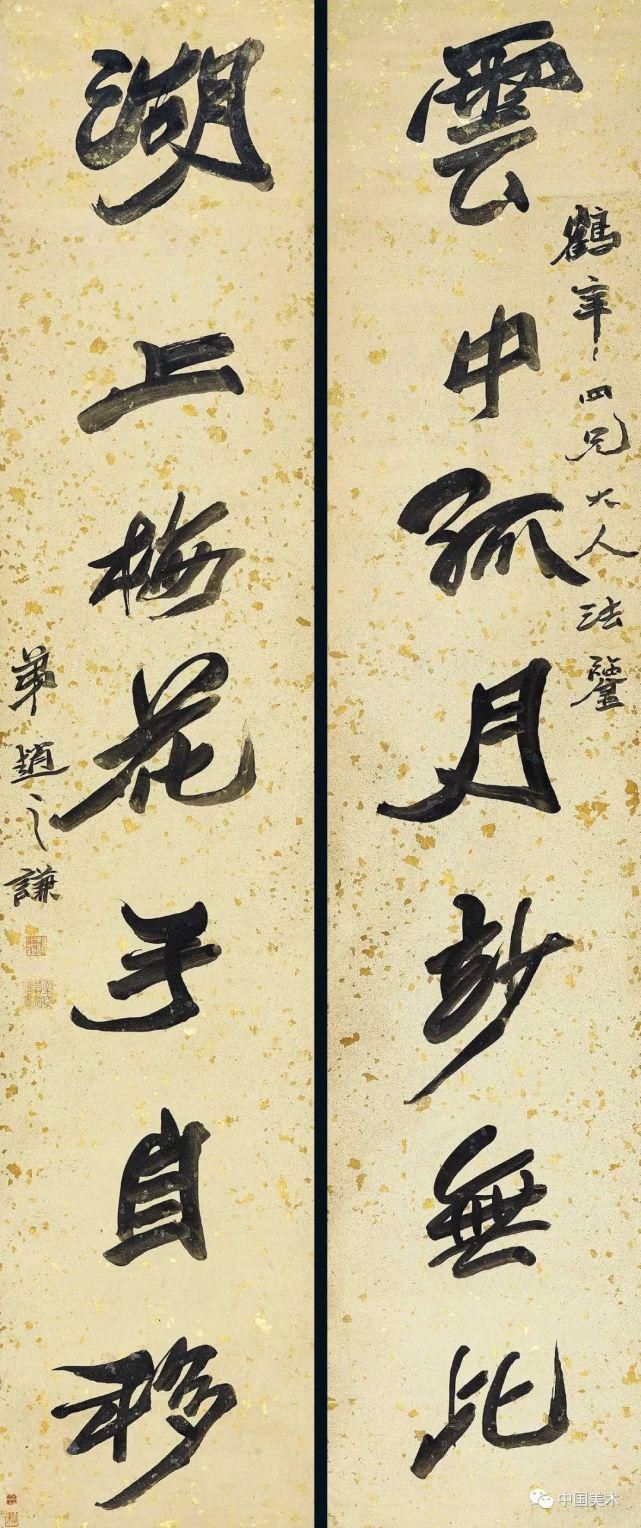 雲中孤月妙無比
鶴年、四兄大人法鑒
湖上梅花手自移
弟趙之謙
中国美术